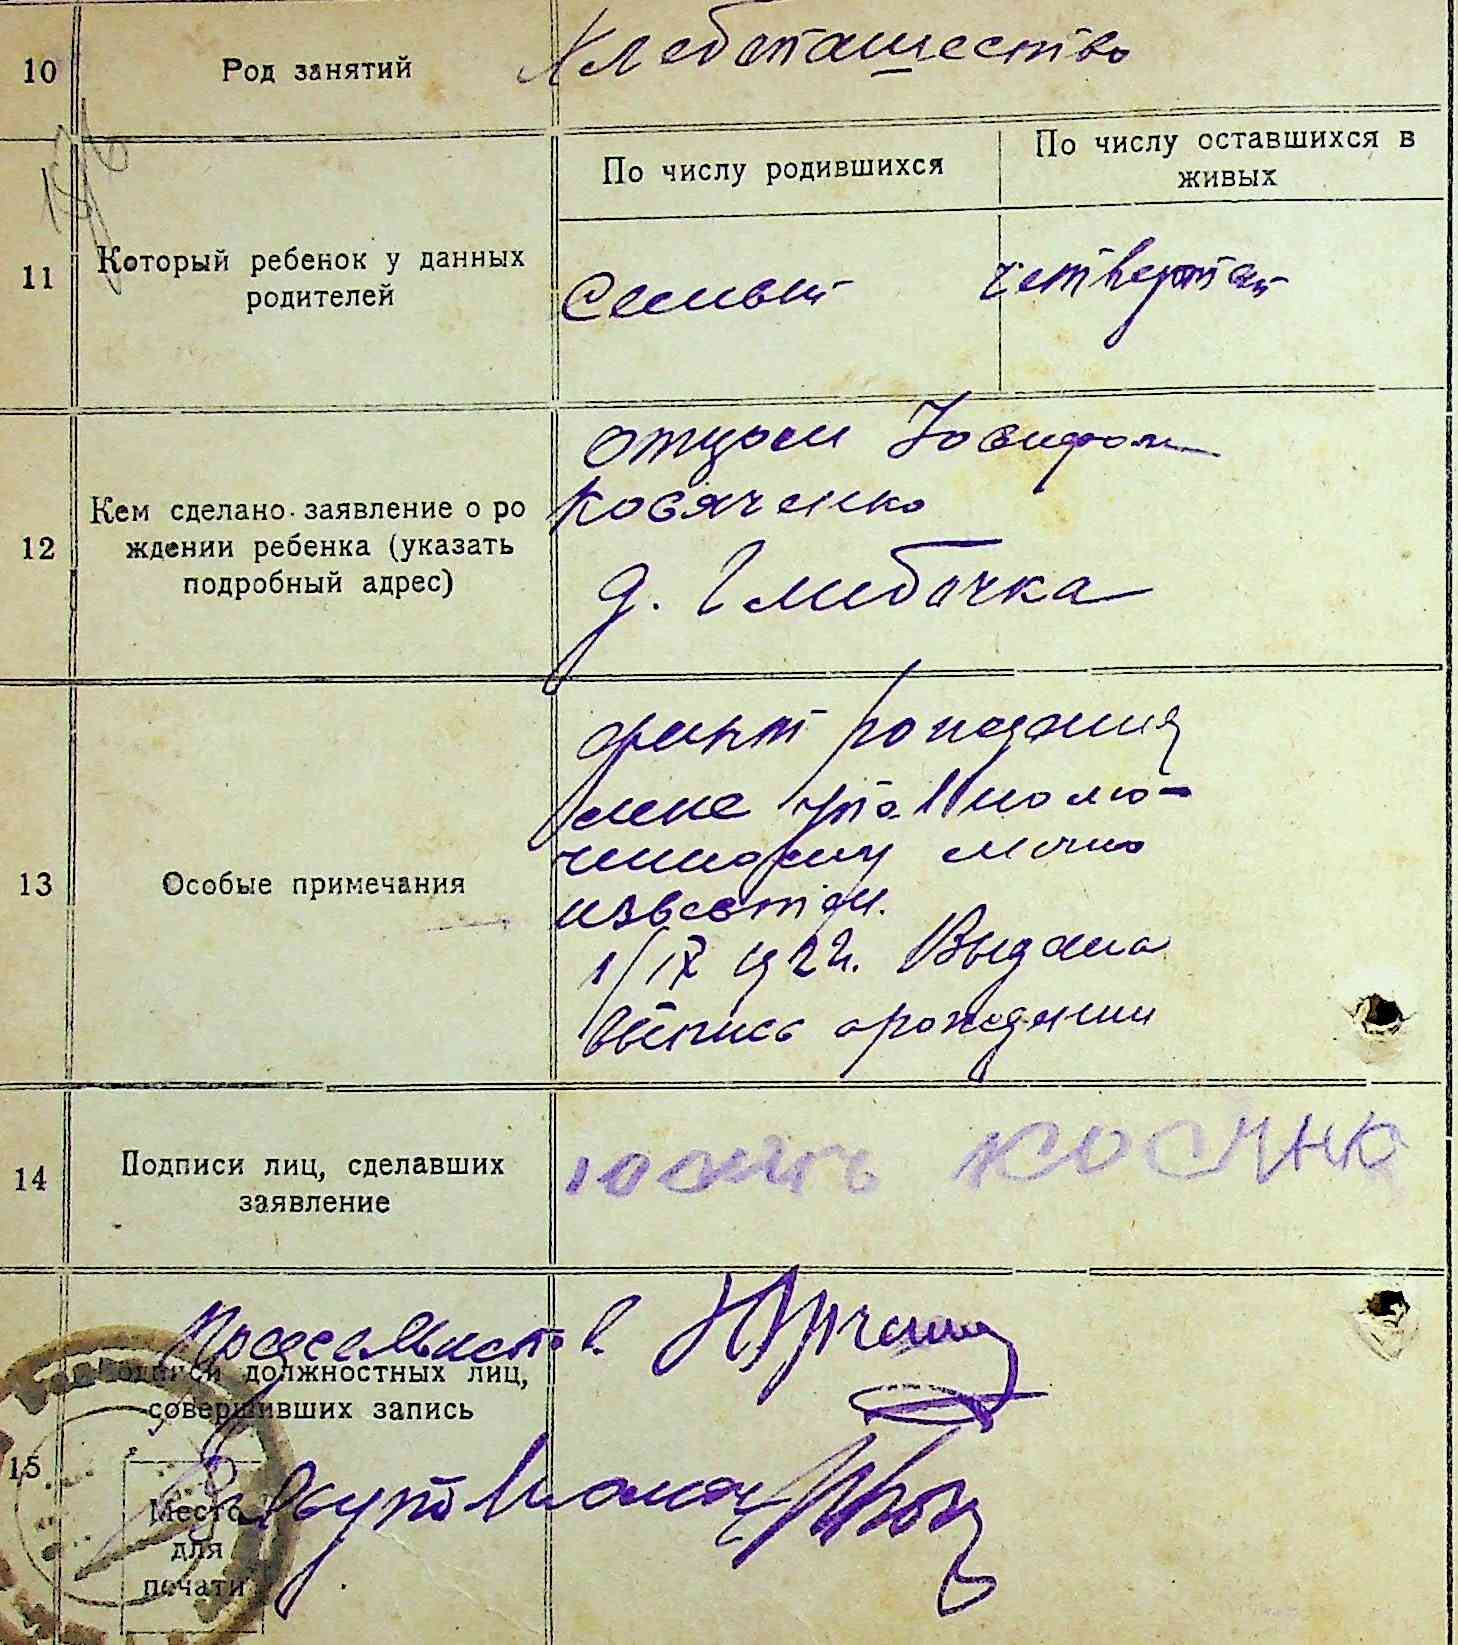 10
Род занятий
Хлебопашество
11
Который ребенок у данных
родителей
По числу родившихся
По числу оставшихся в
живых
Семый
четвертый
12
Кем сделано заявление о ро
ждении ребенка (указать
подробный адрес)
отцом Иосифом
Косяченко
д. Глибочка
13
Особые примечания
факт рождения
мне уполномо-
ченному лично
известен.
1/IX 1922г. Выдана
выпись о рождении
14
Подписи лиц, сделавших
заявление
15
Подписи должностных лиц,
совершивших запись
Место
для
печати